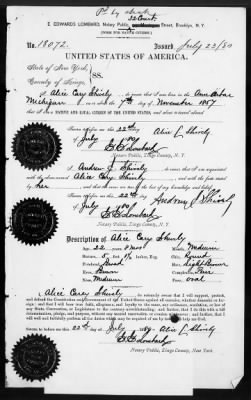 Pd by check
32 Court
E. EDWARDS LOMBARD, Notary Public, Street, Brooklyn, N. Y.
[FORM FOR NATIVE CITIZEN.]
No. 18072. Issued July 23/80
UNITED STATES OF AMERICA.
State of New York,
County of Kings, } SS.
I Alice Cary Shively, do swear that I was born in
Michigan on or about the 7th day of November 1857
that I am a NATIVE AND LOYAL CITIZEN OF THE UNITED STATES, and about to travel abroad.
Sworn before me this 22d day
of July 1880 Alice C Shively
E. E. Lombard
Notary Public, Kings County, N. Y.
I Andrew J Shively, do swear that I am acquainted with
Alice Cary Shively and with the facts above stated by
her and that the same are true to the best of my knowledge and belief.
Sworn before me this 22d day
of July 1880
E. E. Lombard
Notary Public, Kings County, N. Y.
Description of Alice Cary Shively
Age 22 Mouth Medium
Stature 5 Inches, Eng. Chin Round
Forehead Hair Light Brown
Eyes Complexion Fair
Nose Medium Face Oval
I Alice Cary Shively do solemnly swear that I will support, protect, and
defend the Constitution and Government of the United States against all enemies, whether domestic or for-
eign; and that I will bear true faith, allegiance, and loyalty to the same, any ordinance, resolution, or law of
any State, Convention, or Legislature to the contrary notwithstanding; and further, that I do this with a full
determination, pledge, and purpose, without any mental reservation or evasion whatsoever; and further, that I
will well and faithfully perform all the duties which may be required of me by law. So help me God.
Sworn to before me this 22d day of July 1880 Alice C Shively
E. E. Lombard
Notary Public, Kings County, New York.